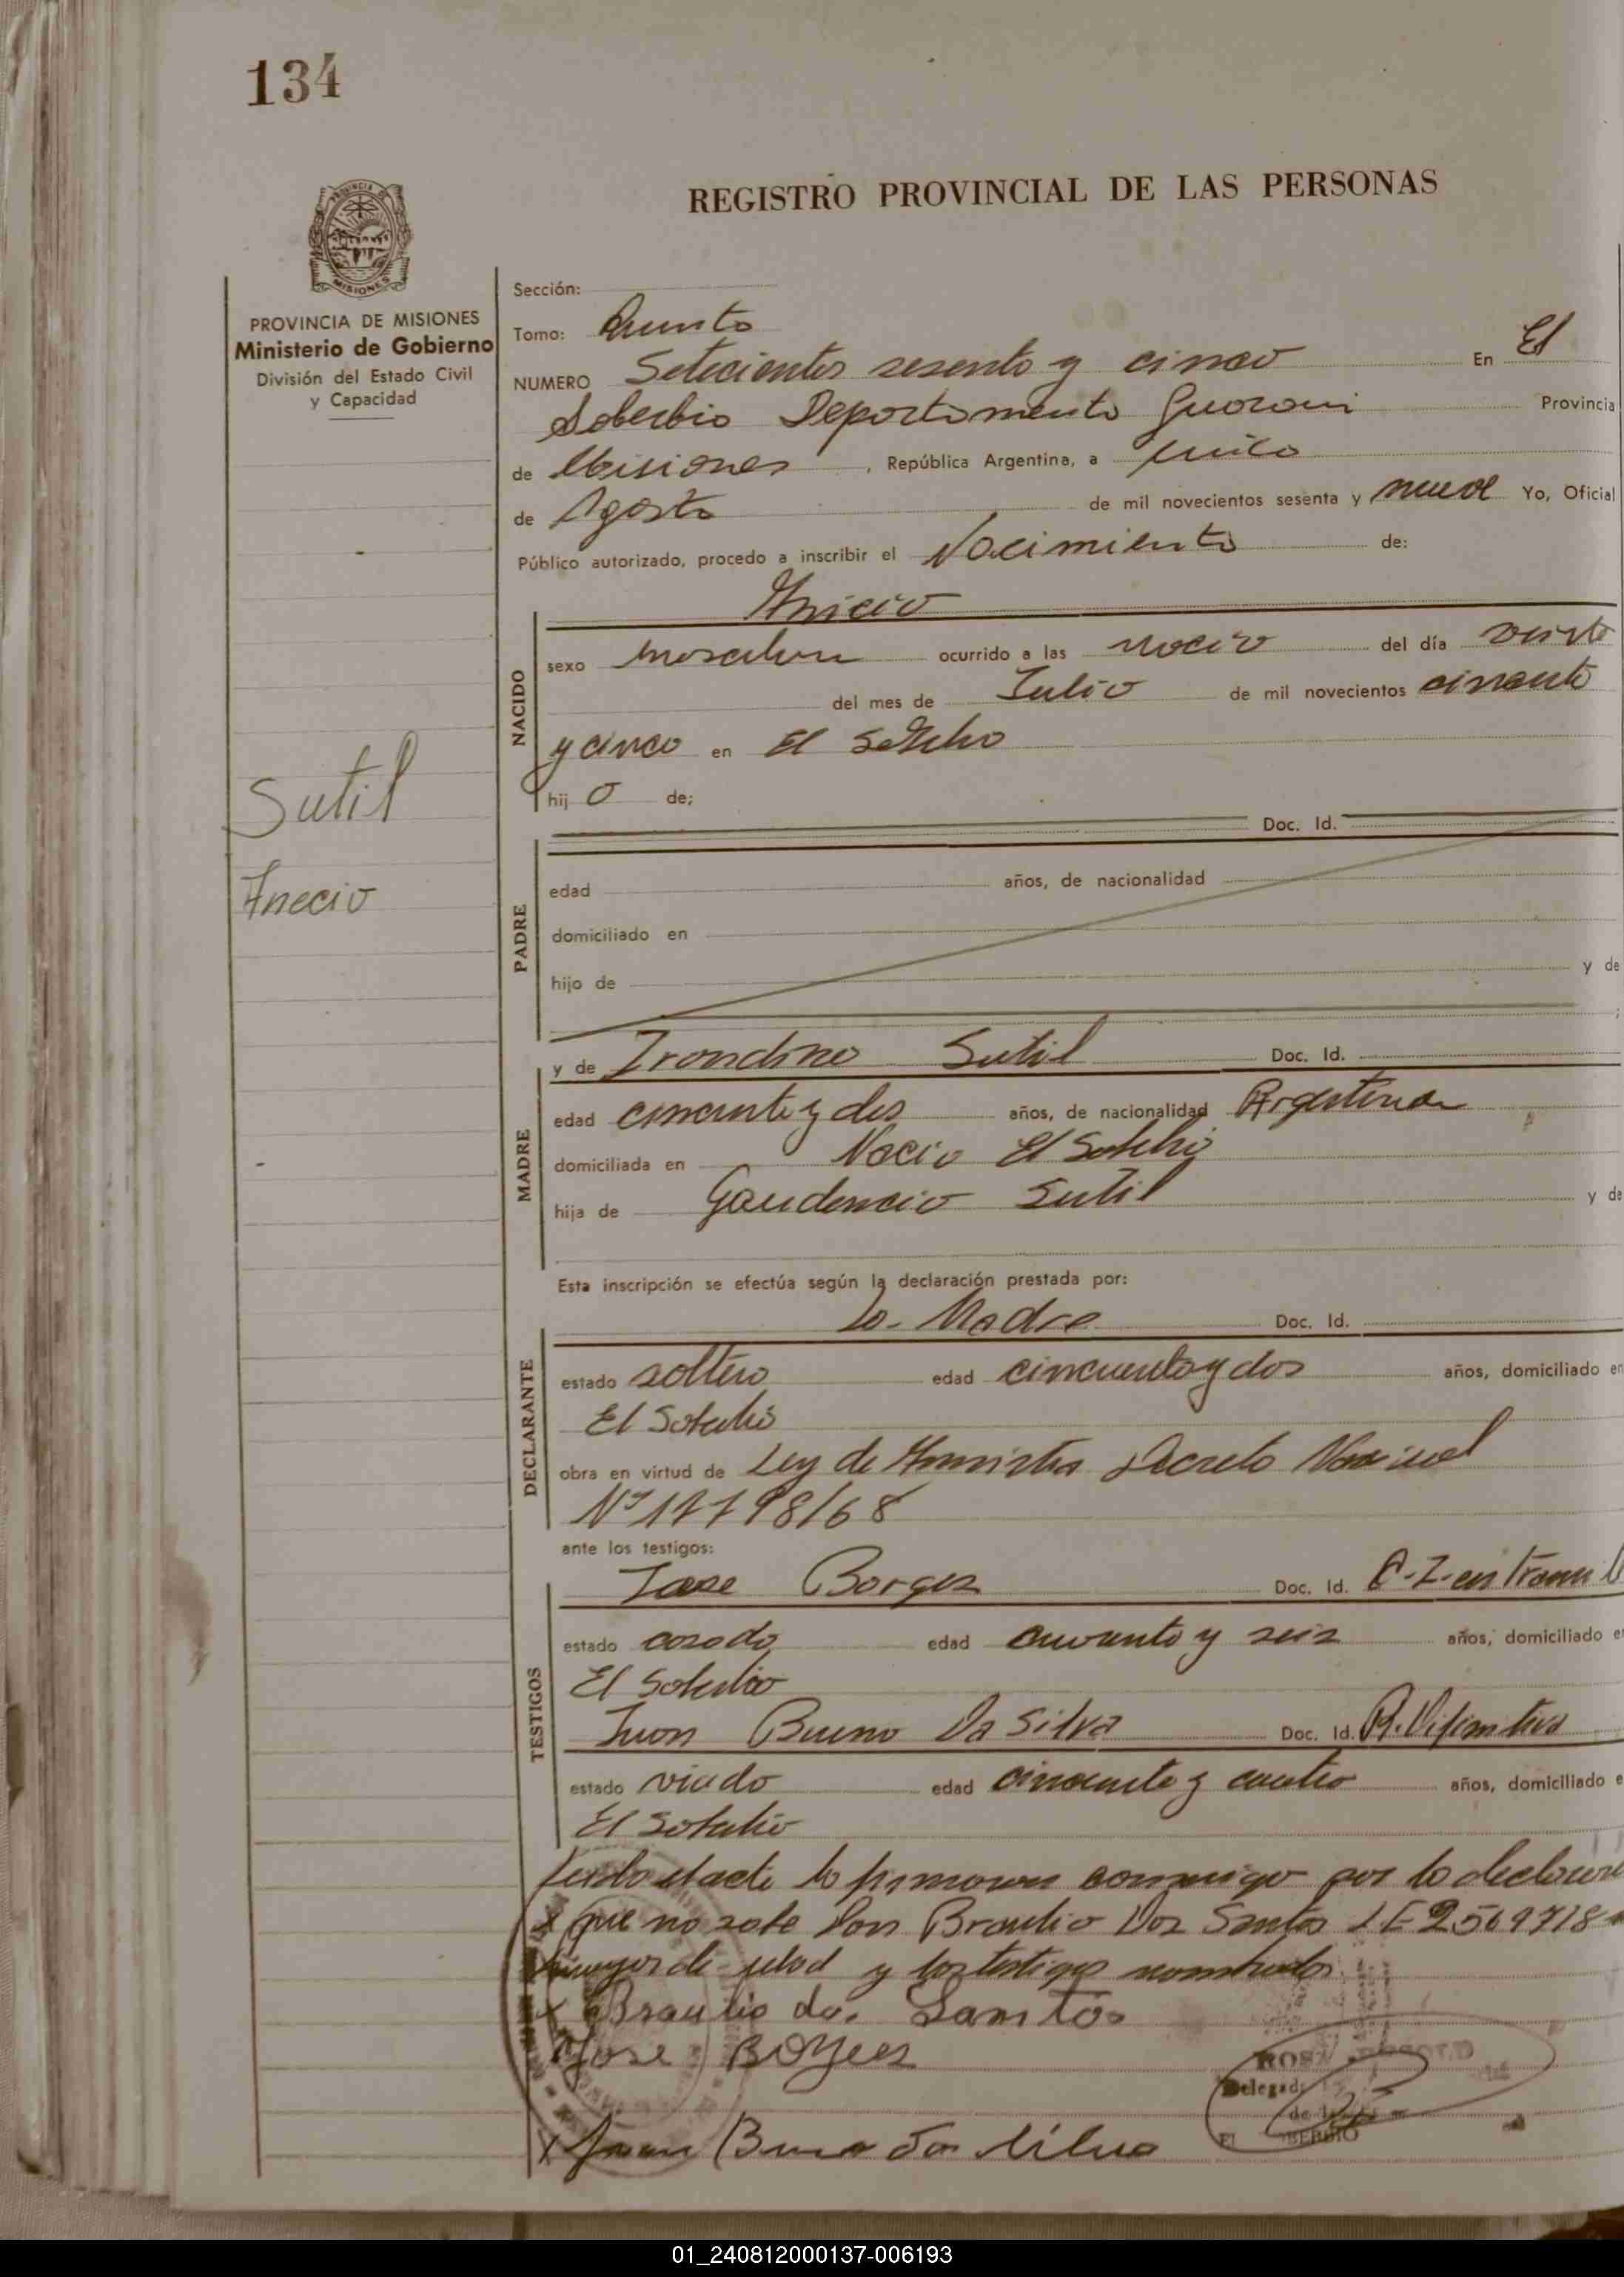 134
REGISTRO PROVINCIAL DE LAS PERSONAS
PROVINCIA DE MISIONES
Ministerio de Gobierno
División del Estado Civil
y Capacidad
Sutil
Anecio
Sección:
Tomo: Quinto
NUMERO Setecientos sesenta y cinco En El
Soberbio Departamento Guarani Provincia
de Misiones, República Argentina, a
de Agosto de mil novecientos sesenta y nueve Yo, Oficial
Público autorizado, procedo a inscribir el Nacimiento de:
NACIDO
sexo masculino ocurrido a las del día
del mes de Julio de mil novecientos cincuenta
y cinco en El Soberbio
hij o de;
PADRE
Doc. Id.
edad años, de nacionalidad
domiciliado en
hijo de y de
;
MADRE
y de Irondina Sutil Doc. Id.
edad cincuenta y dos años, de nacionalidad Argentina
domiciliada en Nacio El Soberbio
hija de Gaudencio Sutil y de
Esta inscripción se efectúa según la declaración prestada por:
DECLARANTE
La Madre Doc. Id.
estado soltera edad cincuenta y dos años, domiciliado en
El Soberbio
obra en virtud de Ley de Amnistia Decreto Nacional
Nº 17798/68
ante los testigos:
TESTIGOS
Jose Borges Doc. Id. C.I. en Tramit
estado casado edad y seis años, domiciliado en
El Soberbio
Juan Bueno Da Silva Doc. Id.
estado viudo edad cincuenta y cuatro años, domiciliado e
El Soberbio
Leida el acta la firmaron conmigo por la declarante
que no sabe Don Braulio Dos Santos L E 2569718
mayor de edad y los testigos nombrados
Braulio dos Santos
Jose Borges
Juan Bueno da Silva
Delegad
01_240812000137-006193